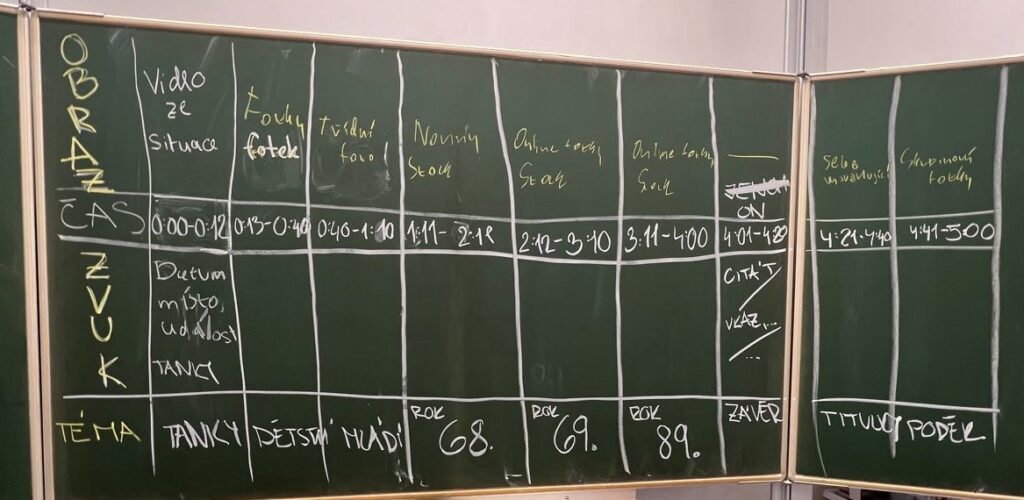 OBRAZ
Video
ze
situace
Fotky
fotek
Třídní
foto
Noviny
Stock
Online fotky
Stock
Online fotky
Stock
ON
Sebe
Skupinová
fotky
ČAS
0:00-0:12
0:13-0:40
0:40-1:10
1:11-
2:12-3:10
3:11-4:00
4:01-4:20
4:21-4:40
4:41-5:00
ZVUK
Datum
místo,
událost
TANKY
CITÁT
VZKAZ...
...
TÉMA
TANKY
DĚTSTVÍ
MLÁDÍ
ROK
68.
ROK
69.
ROK
89.
ZÁVĚR
TITULKY
PODĚK